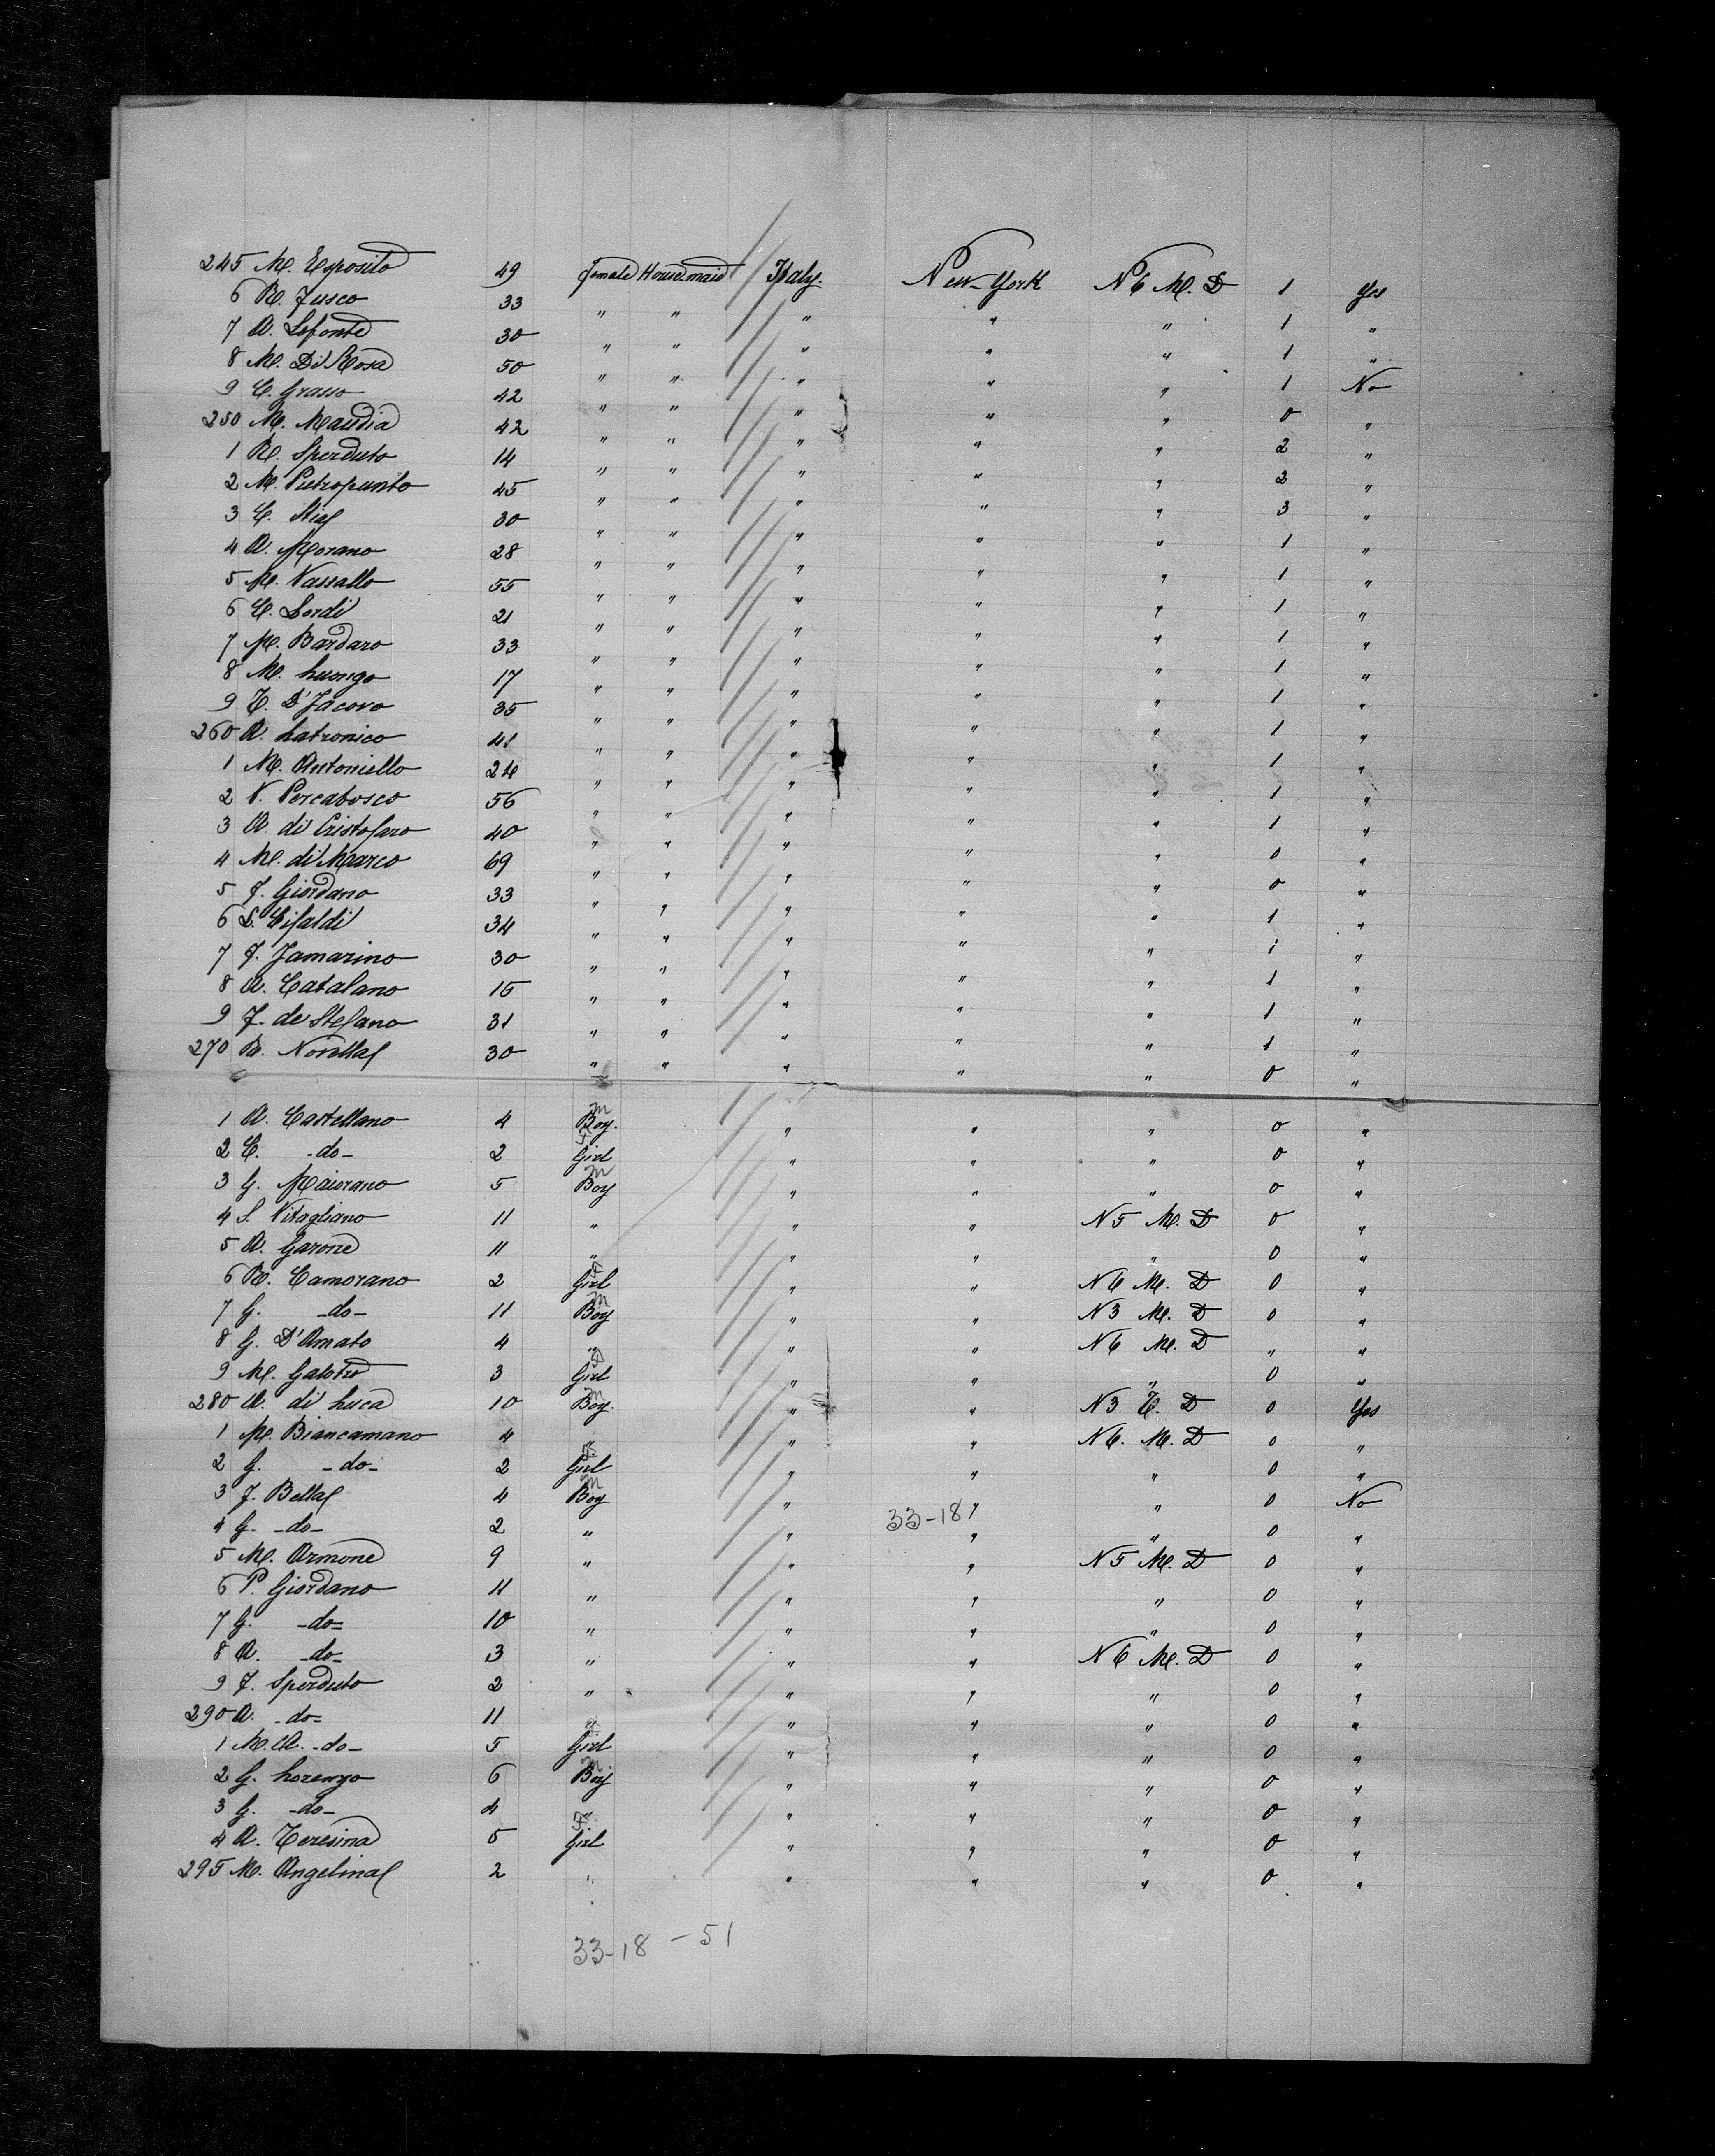 245 M. Esposito 49 female House maid Italy. New-York N6 M. D 1 Yes
6 R. Fusco 33 " " " " " 1 "
7 A. Lefonte 30 " " " " " 1 "
8 M. Di Rosa 50 " " " " " 1 No
9 C. Grasso 42 " " " " " 0 "
250 M. Mandia 42 " " " " " 2 "
1 R. Sperduto 14 " " " " " 2 "
2 M. Pietropunto 45 " " " " " 3 "
3 C. 30 " " " " " 1 "
4 A. Morano 28 " " " " " 1 "
5 M. Vassallo 55 " " " " " 1 "
6 C. Lordi 21 " " " " " 1 "
7 M. Bardaro 33 " " " " " 1 "
8 M. Luongo 17 " " " " " 1 "
9 T. D'Jacovo 35 " " " " " 1 "
260 A. Latronico 41 " " " " " 1 "
1 M. Antoniello 24 " " " " " 1 "
2 V. Percabosco 56 " " " " " 1 "
3 A. di Cristofaro 40 " " " " " 0 "
4 M. di Marco 69 " " " " " 0 "
5 F. Giordano 33 " " " " " 1 "
6 L. Cifaldi 34 " " " " " 1 "
7 F. Jamarino 30 " " " " " 1 "
8 A. Catalano 15 " " " " " 1 "
9 F. de Stefano 31 " " " " " 1 "
270 R. 30 " " " " " 0 "
m
1 A. Castellano 4 Boy. " " " 0 "
f
2 C. -do- 2 Girl " " " 0 "
m
3 G. Maiorano 5 Boy " " " 0 "
4 S. Vitagliano 11 " " " N5 M. D 0 "
5 A. Garone 11 " " " " 0 "
f
6 R. Camorano 2 Girl " " N6 M. D 0 "
m
7 G. -do- 11 Boy " " N3 M. D 0 "
8 G. D'Amato 4 " " " N6 M. D " "
f
9 M. Galotro 3 Girl " " " 0 "
m
280 A. di Luca 10 Boy. " " N3 T. D 0 Yes
1 M. Biancamano 4 " " " N6. M. D 0 "
f
2 G. -do- 2 Girl " " " 0 "
m
3 F. Bella 4 Boy " " " 0 No
33-18
4 G. -do- 2 " " " " 0 "
5 M. Armone 9 " " " N5 M. D 0 "
6 P. Giordano 11 " " " " 0 "
7 G. -do- 10 " " " " 0 "
8 A. -do- 3 " " " N6 M. D 0 "
9 F. Sperduto 2 " " " " 0 "
290 A. -do- 11 " " " " 0 "
f
1 M. A. -do- 5 Girl " " " 0 "
m
2 G. Lorenzo 6 Boy " " " 0 "
3 G. -do- 4 " " " " 0 "
f
4 A. Teresina 5 Girl " " " 0 "
295 M. Angelina 2 " " " " 0 "
33-18 - 51